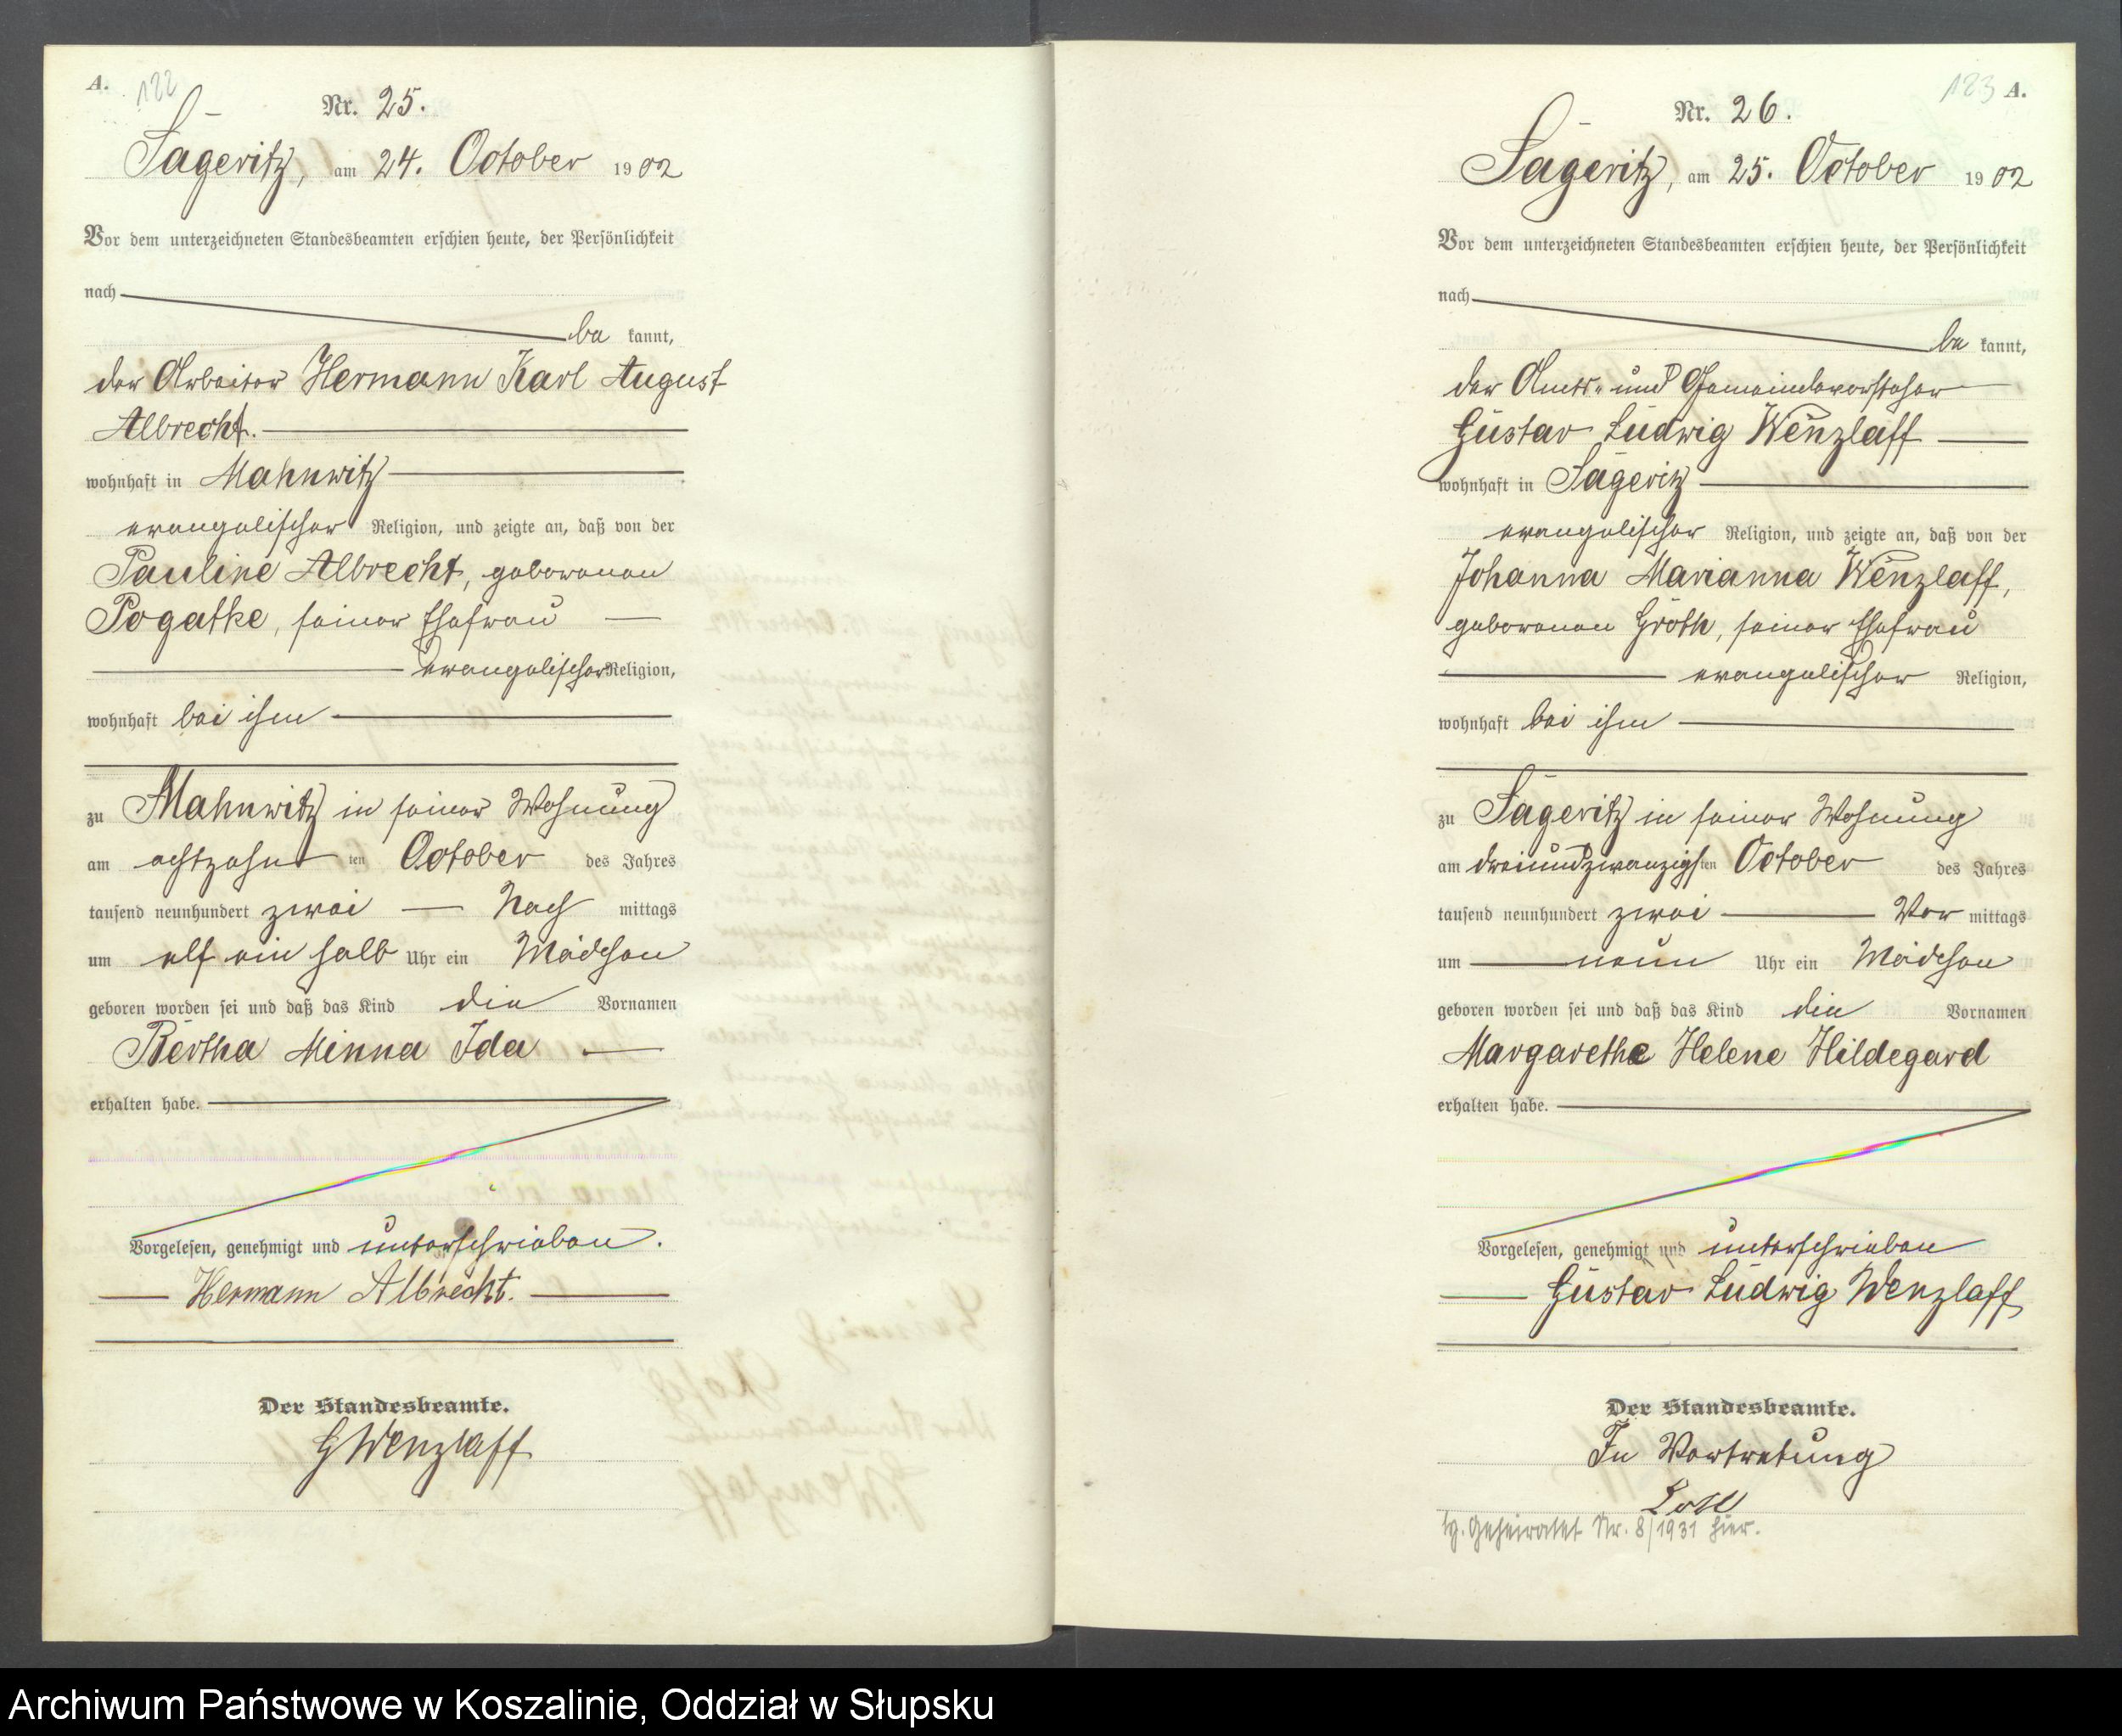 A. 122
Nr. 25.
Sageritz, am 24. October 1902
Vor dem unterzeichneten Standesbeamten erschien heute, der Persönlichkeit
nach
be kannt,
der Arbeiter Hermann Karl August
Albrecht.
wohnhaft in Mahnwitz
evangelischer Religion, und zeigte an, daß von der
Pauline Albrecht, geborenen
Pogatke, seiner Ehefrau
evangelischer Religion,
wohnhaft bei ihm
zu Mahnwitz in seiner Wohnung
am achtzehn ten October des Jahres
tausend neunhundert zwei Nach mittags
um elf ein halb Uhr ein Mädchen
geboren worden sei und daß das Kind die Vornamen
Bertha Minna Ida
erhalten habe.
Vorgelesen, genehmigt und unterschrieben.
Hermann Albrecht.
Der Standesbeamte.
G Wenzlaff
123 A.
Nr. 26.
Sageritz, am 25. October 1902
Vor dem unterzeichneten Standesbeamten erschien heute, der Persönlichkeit
nach
be kannt,
der Amts- und Gemeindevorsteher
Gustav Ludwig Wenzlaff
wohnhaft in Sageritz
evangelischer Religion, und zeigte an, daß von der
Johanna Marianna Wenzlaff,
geborenen Groth, seiner Ehefrau
evangelischer Religion,
wohnhaft bei ihm
zu Sageritz in seiner Wohnung
am dreiundzwanzigsten October des Jahres
tausend neunhundert zwei Vor mittags
um neun Uhr ein Mädchen
geboren worden sei und daß das Kind die Vornamen
Margarethe Helene Hildegard
erhalten habe.
Vorgelesen, genehmigt und unterschrieben
Gustav Ludwig Wenzlaff
Der Standesbeamte.
In Vertretung
Geheiratet Nr. 8/1931 hier.
Archiwum Państwowe w Koszalinie, Oddział w Słupsku